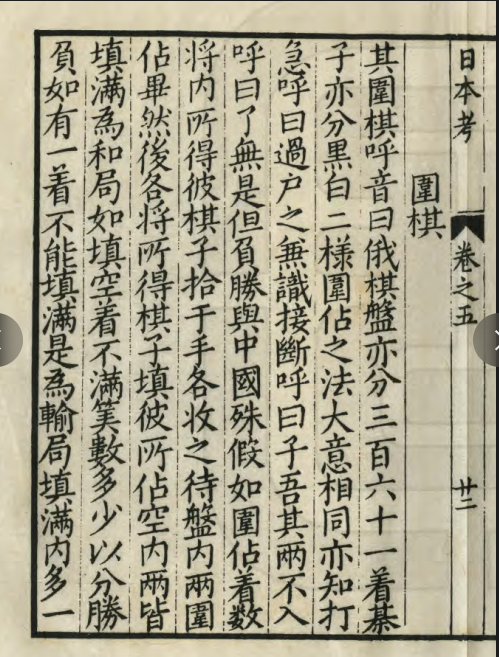 日本考
卷之五
廿二
圍棋
其圍棋呼音曰俄棋盤亦分三百六十一着棊
子亦分黒白二樣圍佔之法大意相同亦知打
急呼曰過户之無識接斷呼曰子吾其兩不入
呼曰了無是但負勝與中國殊假如圍佔着数
将内所得彼棋子拾于手各收之待盤内兩圍
佔畢然後各将所得棋子填彼所佔空内兩皆
填滿為和局如填空着不滿筭數多少以分勝
負如有一着不能填滿是為輸局填滿内多一